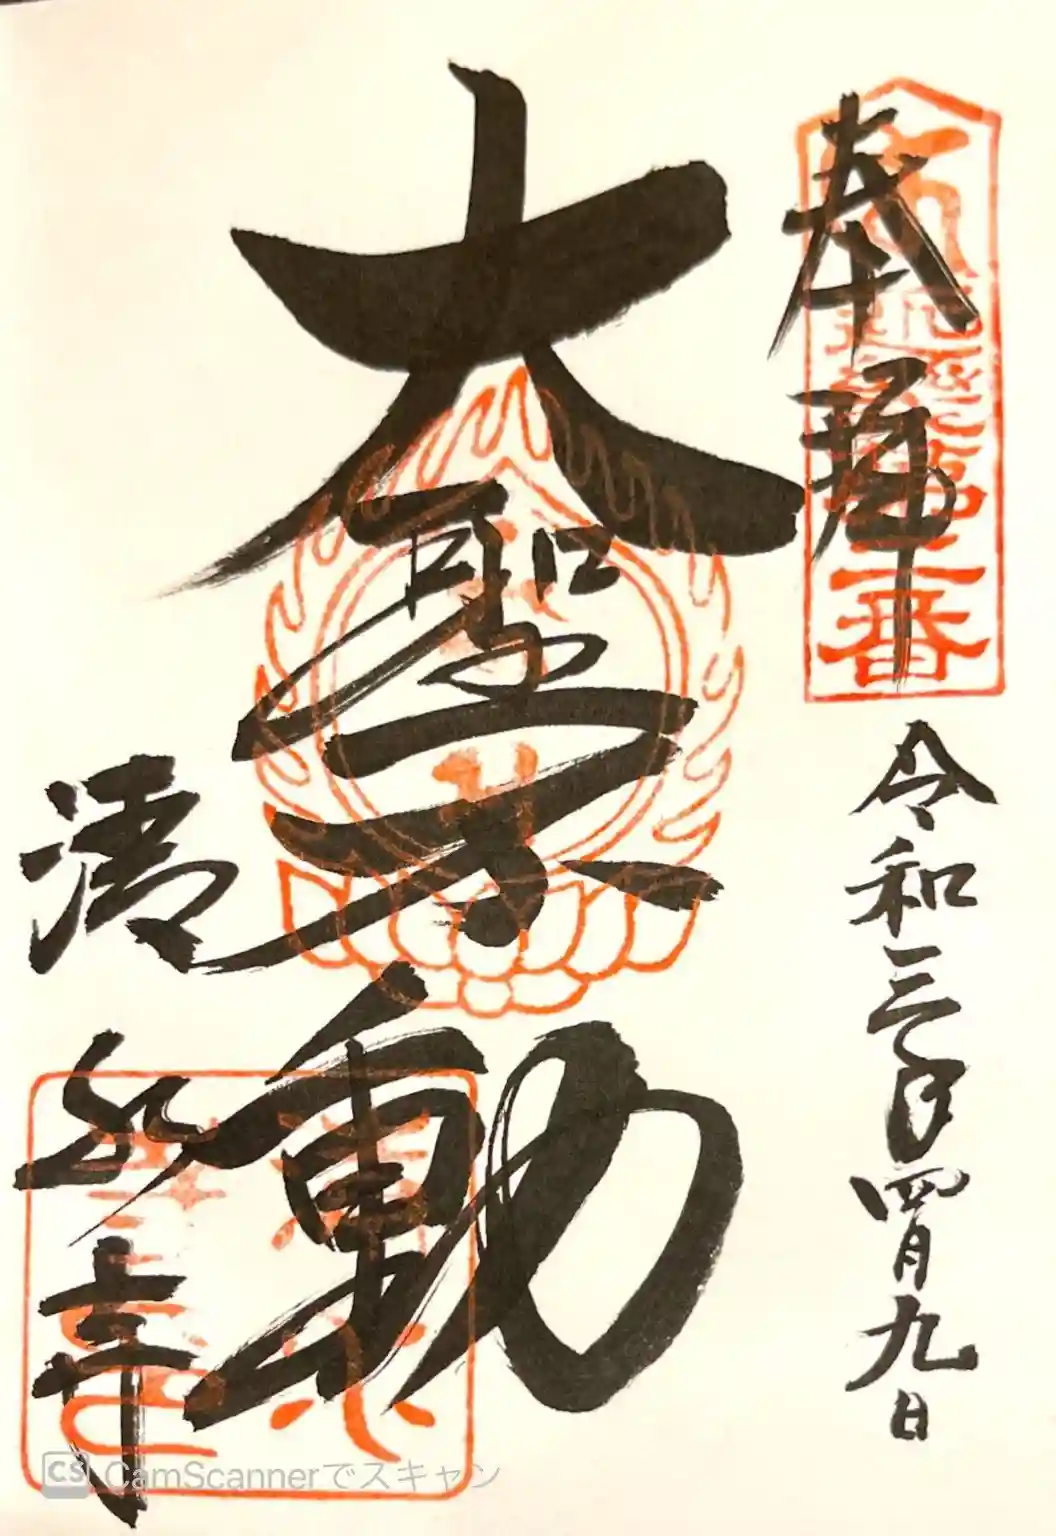 奉拝
令和三年四月九日
大聖不動
清心寺
CS CamScannerでスキャン